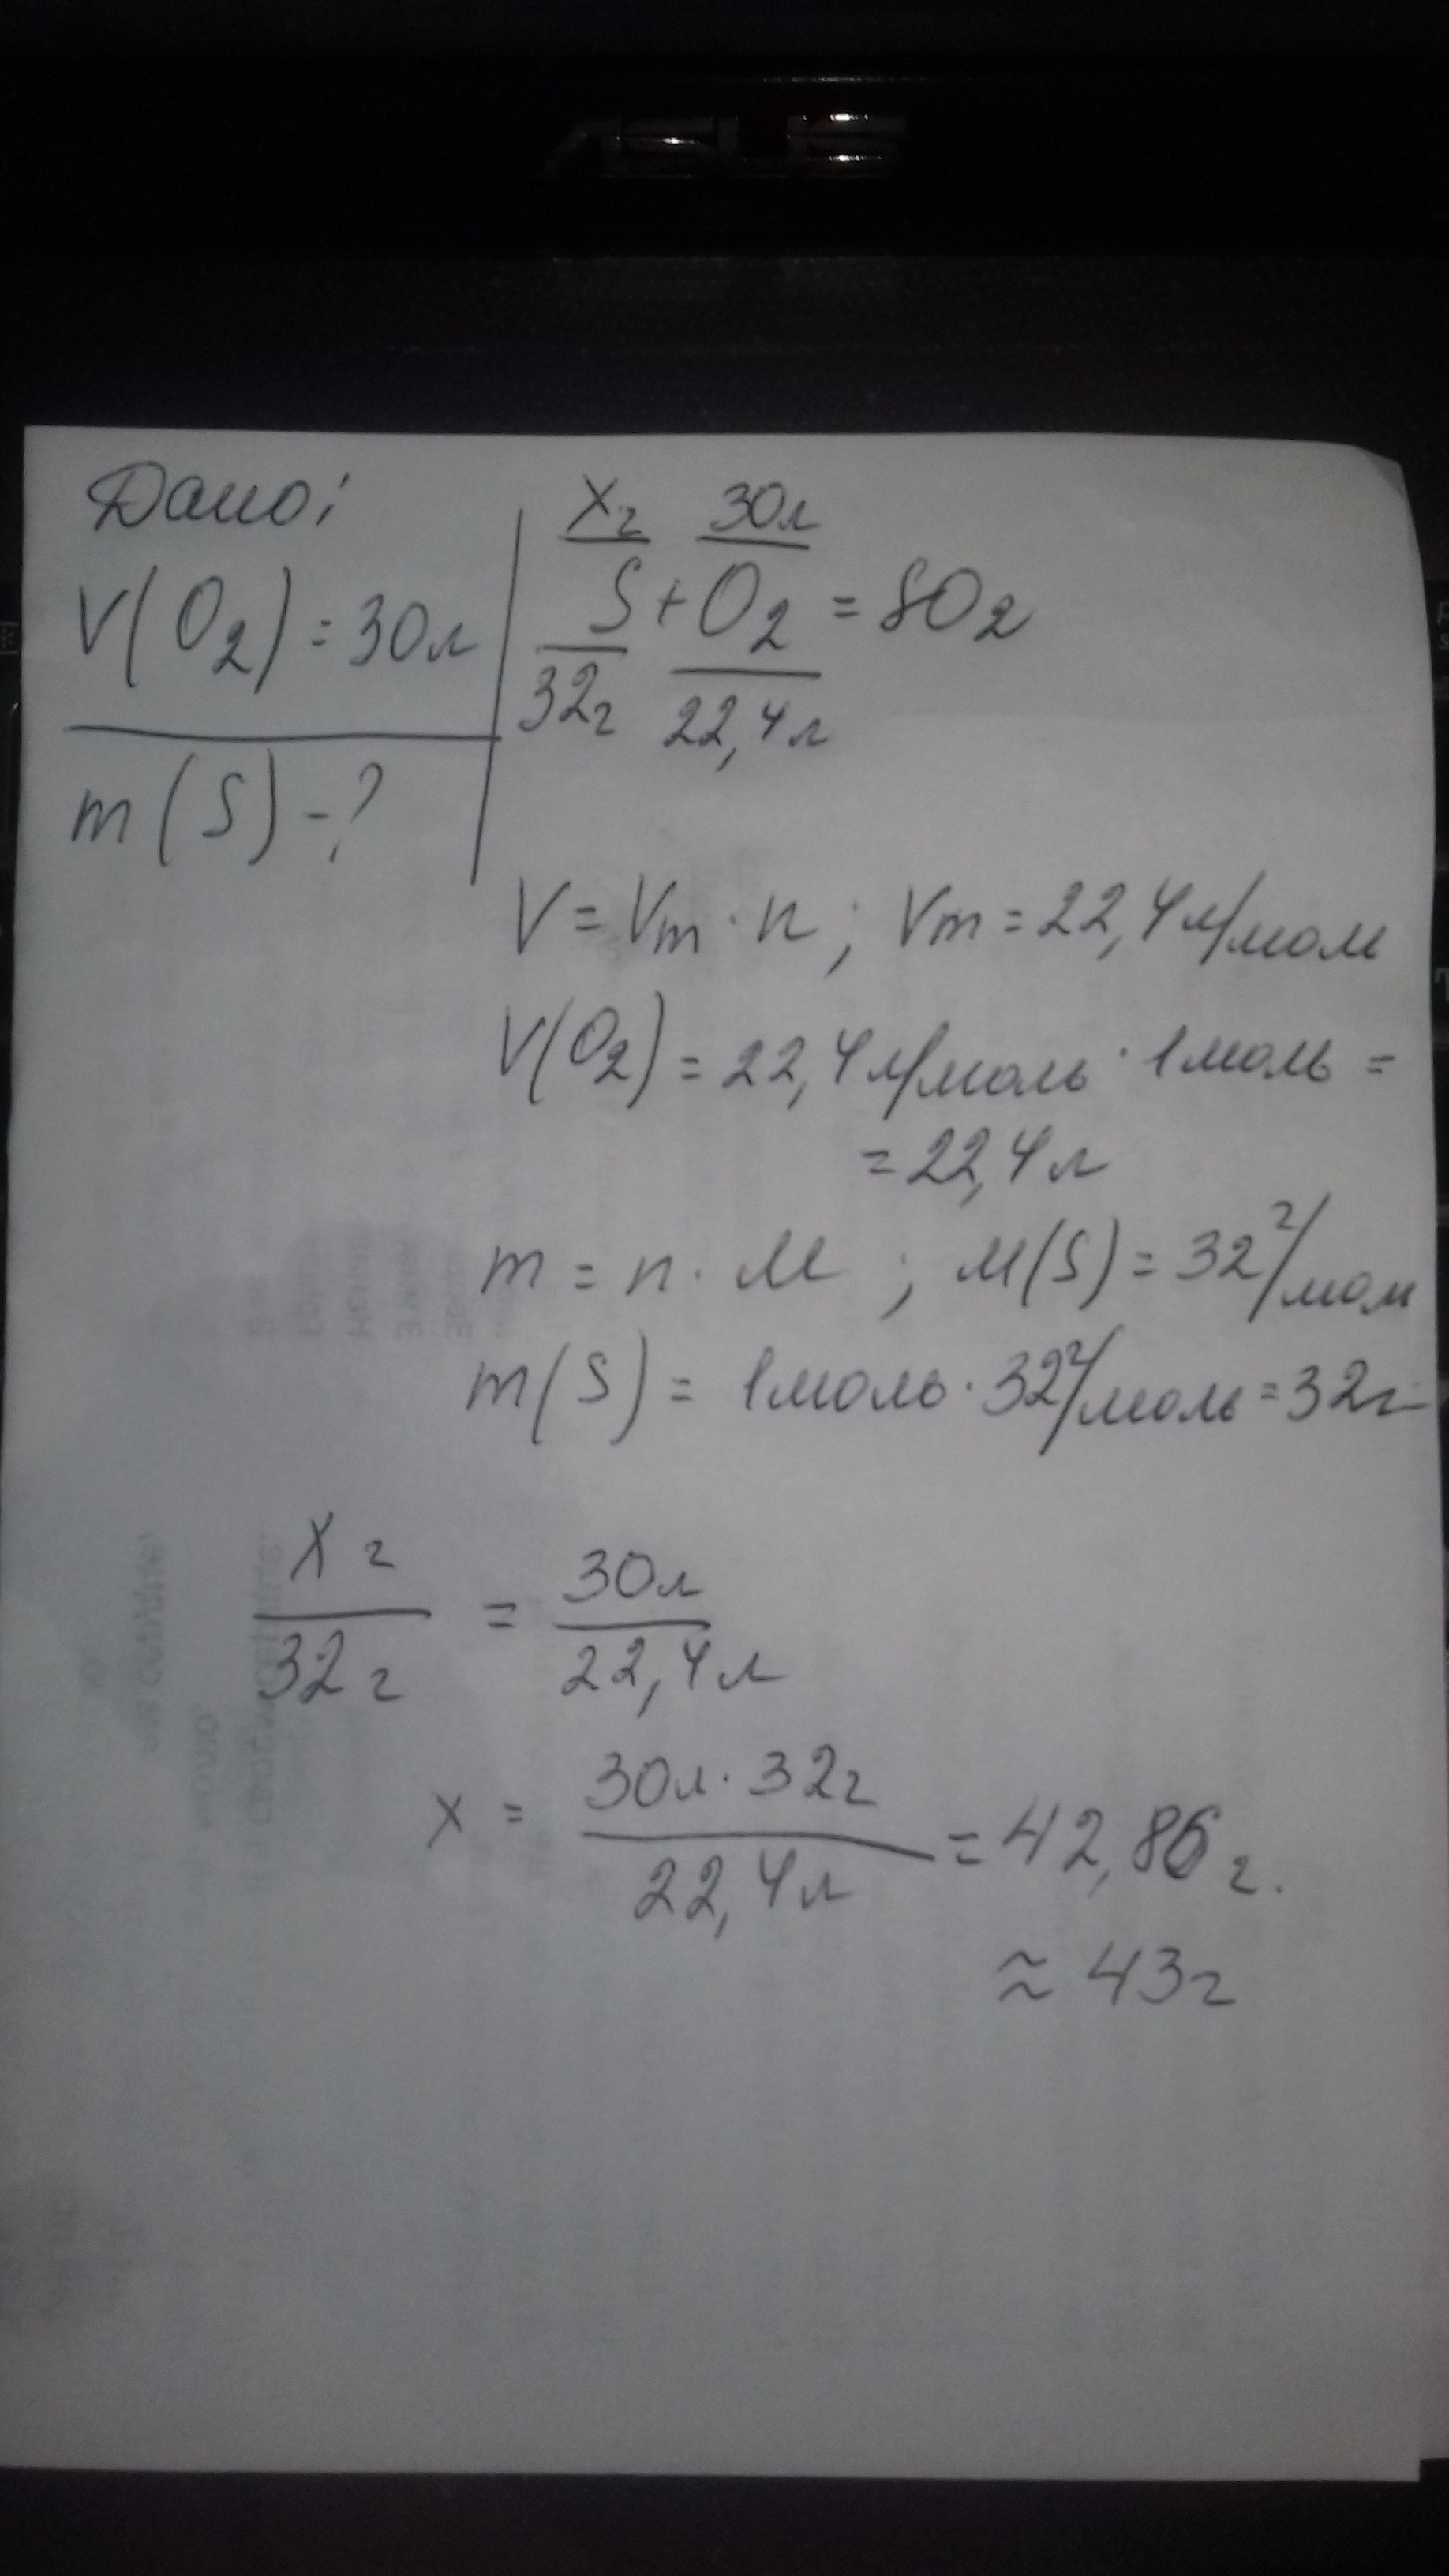 ASUS
Дано:
V(O2) = 30л
m(S) - ?
Xг 30л
S + O2 = SO2
32г 22,4л
V = Vm · n ; Vm = 22,4 л/моль
V(O2) = 22,4 л/моль · 1моль =
= 22,4л
m = n · M ; M(S) = 32 г/моль
m(S) = 1моль · 32 г/моль = 32г
Xг = 30л
32г 22,4л
x = 30л · 32г = 42,86г.
22,4л
≈ 43г